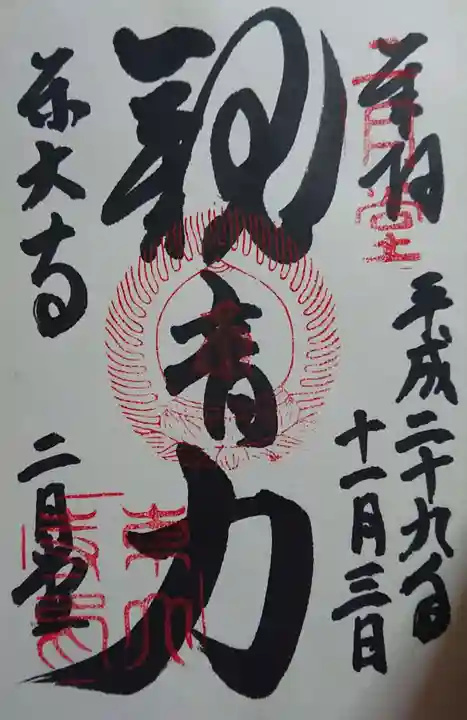 奉拝
二月堂
平成二十九年
十一月三日
観音力
東大寺
二月堂